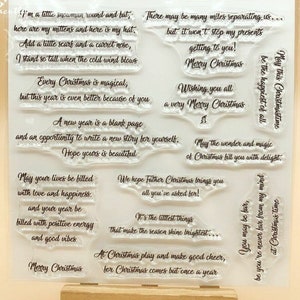 I'm a little snowman round and fat,
here are my mittens and here is my hat,
Add a little scarf and a carrot nose,
I stand so tall when the cold wind blows
There may be many miles separating us...
but it won't stop my presents
getting to you!
Merry Christmas
May this Christmastime
be the happiest of all
Every Christmas is magical,
but this year is even better because of you
Wishing you all
a very Merry Christmas
A new year is a blank page
and an opportunity to write a new story for yourself.
Hope yours is beautiful
May the wonder and magic
of Christmas fill you with delight.
May your lives be filled
with love and happiness
and your year be
filled with positive energy
and good vibes
We hope Father Christmas brings you
all you've asked for!
It's the littlest things
that make the season shine brightest...
You may be far,
but you're never far from my mind
at Christmas time
At Christmas play and make good cheer,
for Christmas comes but once a year
Merry Christmas